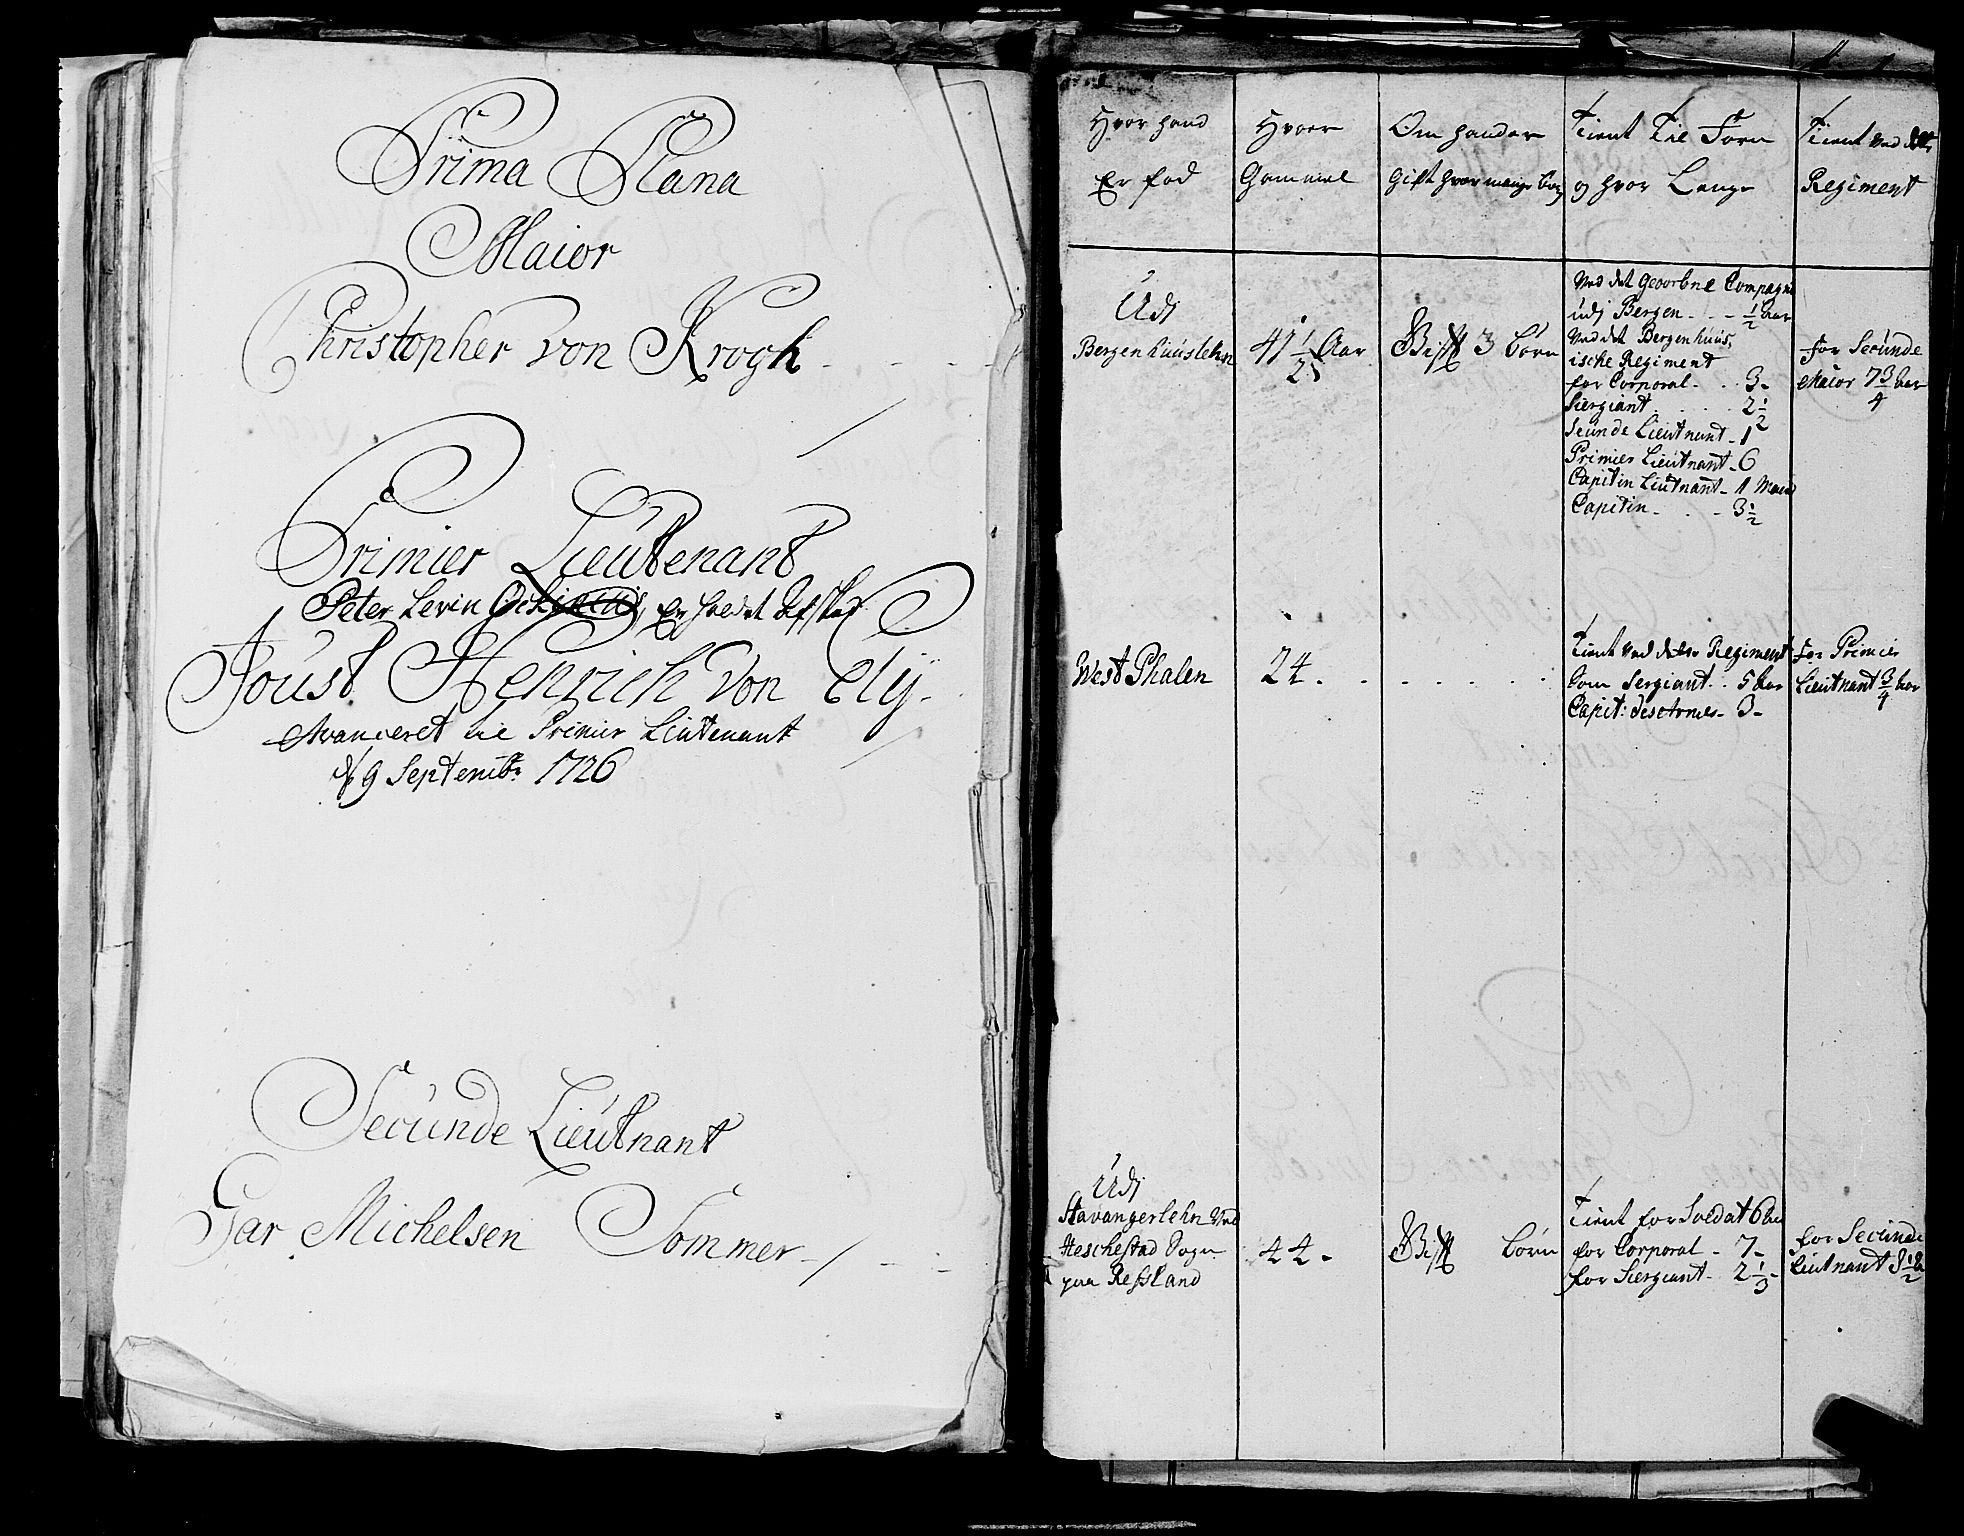 Prima Plana
Maior
Christopher von Krogh
Primier Lieutenant
Peter Levin er
Joust Henrich von Ely
Avanceret til Primier Lieutenant
d 9 Septembr 1726
Secunde Lieutnant
Gar Michelsen Sommer
Hvor hand
Er fød
Hvor
Gammel
Om hand er
Gift hvor mange børn
Tient Til Forn
og hvor Lenge
Tient ved dette
Regiment
Udj
Bergenhuuslehn
41 1/2 Aar
Gift 3 børn
Ved det Geworbne Compagni
udj Bergen - - - 1/2 aar
Ved det Bergenhuus,
ische Regiment
for Corporal - - 3 -
Siergiant - - - 2 1/2
Seunde Lieutnant - 1
Primier Lieutnant - 6
Capitin Liutnant - 1 Maan
Capitin - - - 3 1/2
for Secunde
Maior 7 3/4 aar
West Phalen
24 - - - - - -
Tient ved dette Regiment
som Sergiant - 5 aar
Capit: des Armes - 3 -
for Primier
Lieutnant 3/4 aar
Udj
Stavangerlehn Ved
Heschestad Sogn
paa Ressland
44 -
Gift børn
Tient for Soldat 6 aar
for Corporal - 7 -
for Siergiant - 2 1/3 -
for Secunde
Lieutnant 3 1/2 a